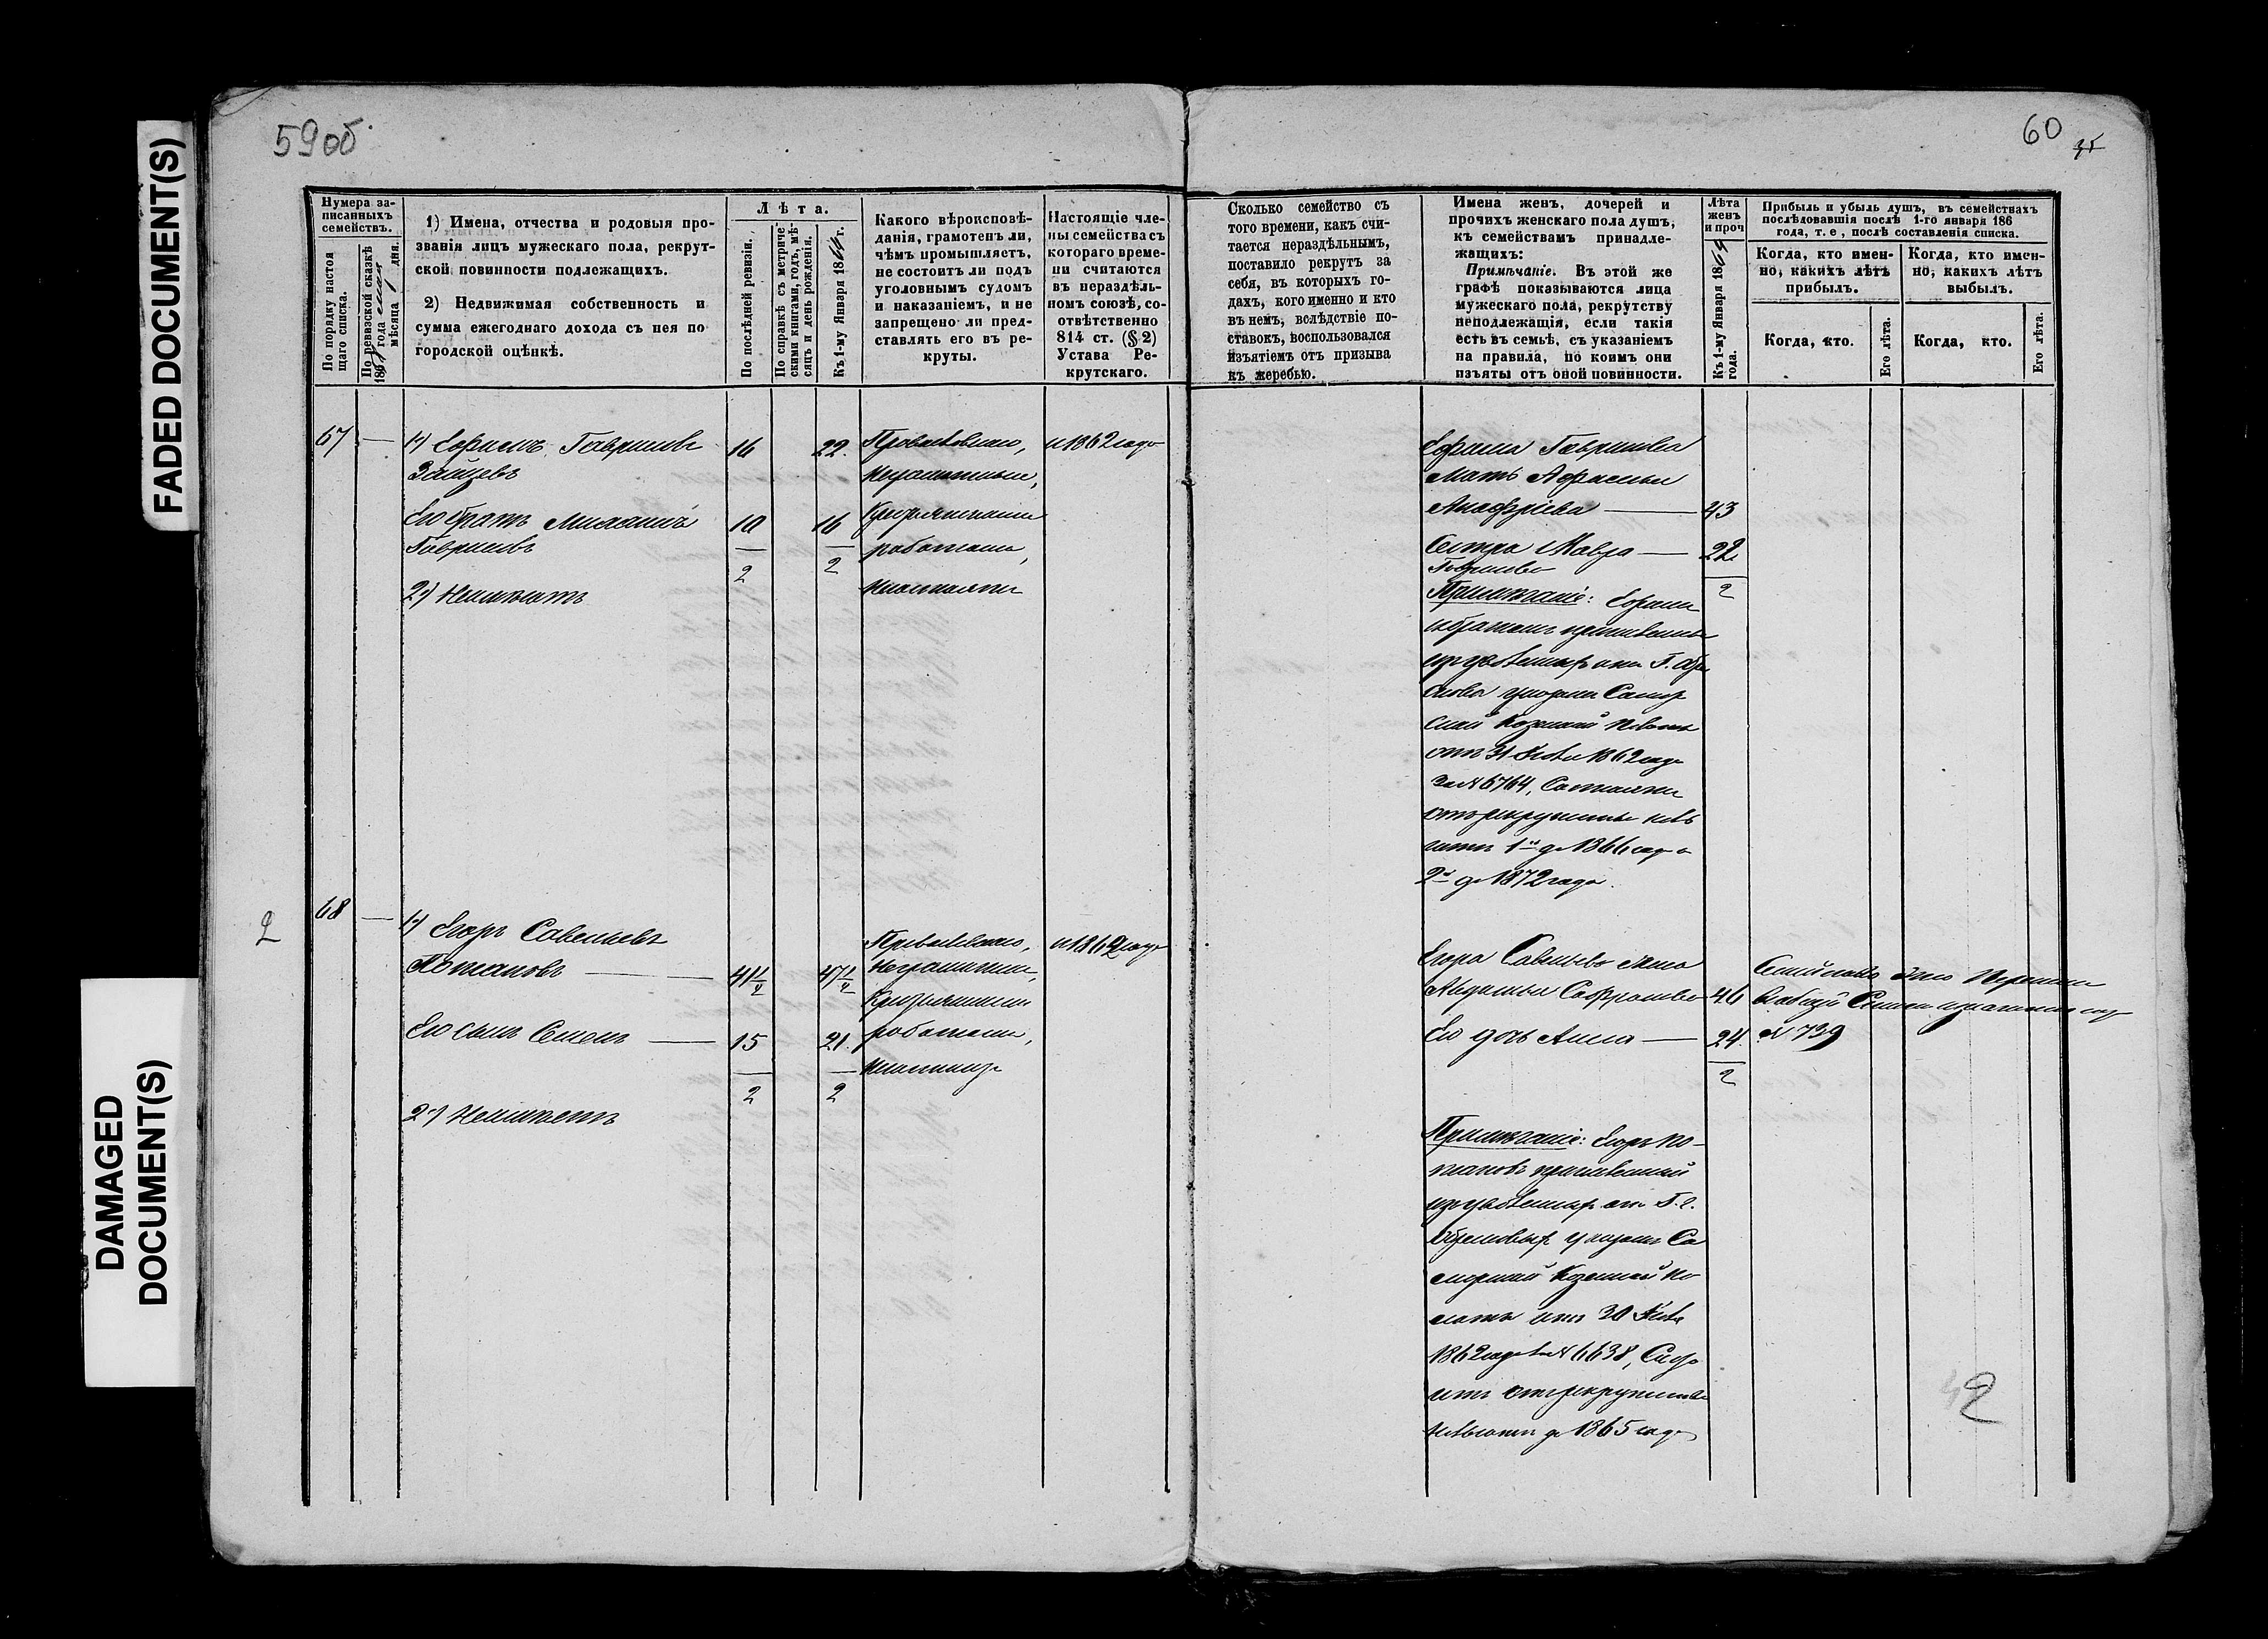 FADED DOCUMENT(S)
DAMAGED
DOCUMENT(S)
59об
Нумера за-
писанныхъ
семействъ.
По порядку настоя
щаго списка.
По ревизской сказкѣ
185 года
мѣсяца 1 дня.
1) Имена, отчества и родовыя про-
званія лицъ мужескаго пола, рекрут-
ской повинности подлежащихъ.
2) Недвижимая собственность и
сумма ежегоднаго дохода съ нея по
городской оцѣнкѣ.
Лѣта.
По послѣдней ревизіи.
По справкѣ съ метриче-
скими книгами, годъ, мѣ-
сяцъ и день рожденія.
Къ 1-му Января 1864 г.
Какого вѣроисповѣ-
данія, грамотенъ ли,
чѣмъ промышляетъ,
не состоитъ ли подъ
уголовнымъ судомъ
и наказаніемъ, и не
запрещено ли пред-
ставлять его въ ре-
круты.
Настоящіе чле-
ны семейства съ
котораго време-
ни считаются
въ нераздѣль-
номъ союзѣ, со-
отвѣтственно
814 ст. (§ 2)
Устава Ре-
крутскаго.
67 —
1) Ефремъ Гавриловъ 16 22.
Зайцевъ
Его братъ Михаилъ 10 16
Гавриловъ
2 2
2) Неимѣетъ
Православнаго,
Неграмотные,
Крестьянскими
работами,
с 1862 года
2
68 —
1) Егоръ Савельевъ
Потаповъ — 41 1/2 47 1/2
Его сынъ Семенъ — 15 21.
2 2
2) Неимѣетъ
Православнаго,
Неграмотные,
Крестьянскими
работами,
с 1862 года
60
35
Сколько семейство съ
того времени, какъ счи-
тается нераздѣльнымъ,
поставило рекрутъ за
себя, въ которыхъ го-
дахъ, кого именно и кто
въ немъ, вслѣдствіе по-
ставокъ, воспользовался
изъятіемъ отъ призыва
къ жеребью.
Имена женъ, дочерей и
прочихъ женскаго пола душъ,
къ семействамъ принадле-
жащихъ:
Примѣчаніе. Въ этой же
графѣ показываются лица
мужескаго пола, рекрутству
неподлежащія, если такія
есть въ семьѣ, съ указаніемъ
на правила, по коимъ они
изъяты отъ оной повинности.
Лѣта
женъ
и проч
Къ 1-му Января 1864
года.
Прибыль и убыль душъ, въ семействахъ
послѣдовавшія послѣ 1-го января 186
года, т. е, послѣ составленія списка.
Когда, кто имен-
но, какихъ лѣтъ
прибылъ.
Когда, кто имен-
но, какихъ лѣтъ
выбылъ.
Когда, кто.
Его лѣта.
Когда, кто.
Его лѣта.
Ефрема Гаврилова
Мать Афросинья
— 43
Сестра Мавра — 22
Гаврилова
2
Примѣчаніе: Ефремъ
съ братомъ
указомъ Самар
ской Казенной Палаты
отъ 31 1862 года
за № 6764,
1й до 1866 года
2й до 1872 года.
Егора Савельева жена
Авдотья 46
Его дочь Анна — 24.
2
Семейство это
№ 739
Примѣчаніе: Егоръ По-
таповъ
указомъ Са
марской Казенной Па
латы отъ 30
1862 года за № 6638,
до 1865 года
2